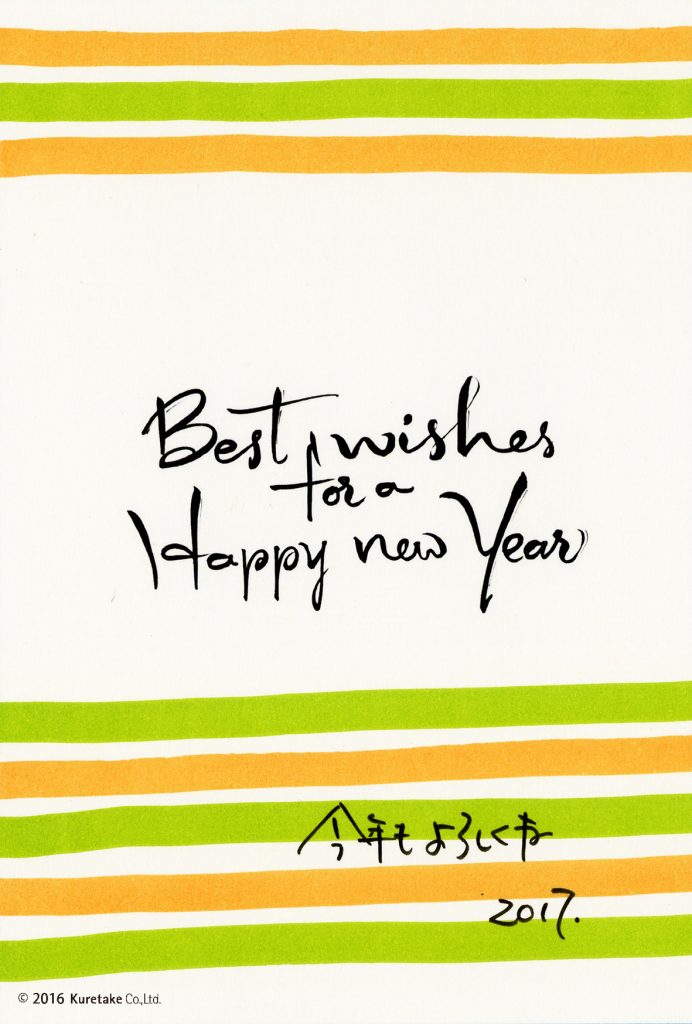 Best wishes
for a
Happy new Year
今年もよろしくね
2017.
© 2016 Kuretake Co.,Ltd.